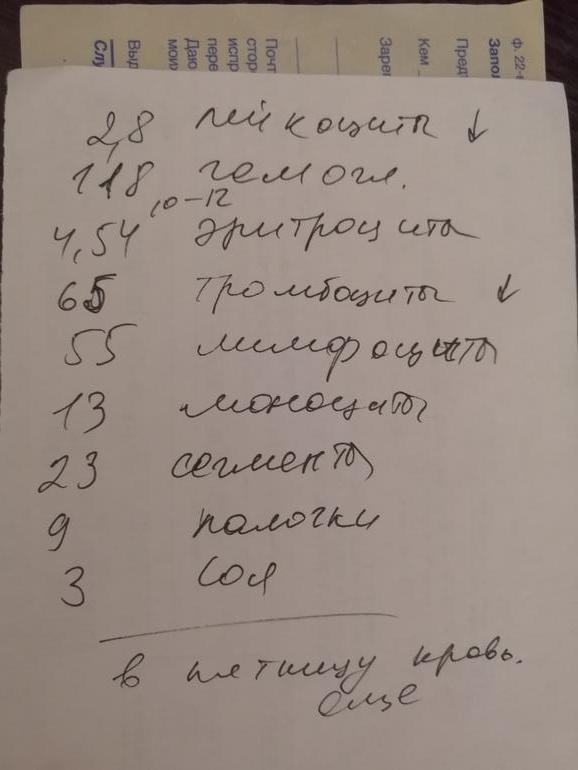 ф. 22-
Запол
Пред
Кем
Заре
Почт
стор
испр
пере
Даю
мои
Выд
Слу
2,8 лейкоциты ↓
118 гемогл.
4,54 эритроциты
65 тромбоциты ↓
55 лимфоциты
13 моноциты
23 сегменты
9 палочки
3 соэ
в пятницу кровь.
еще